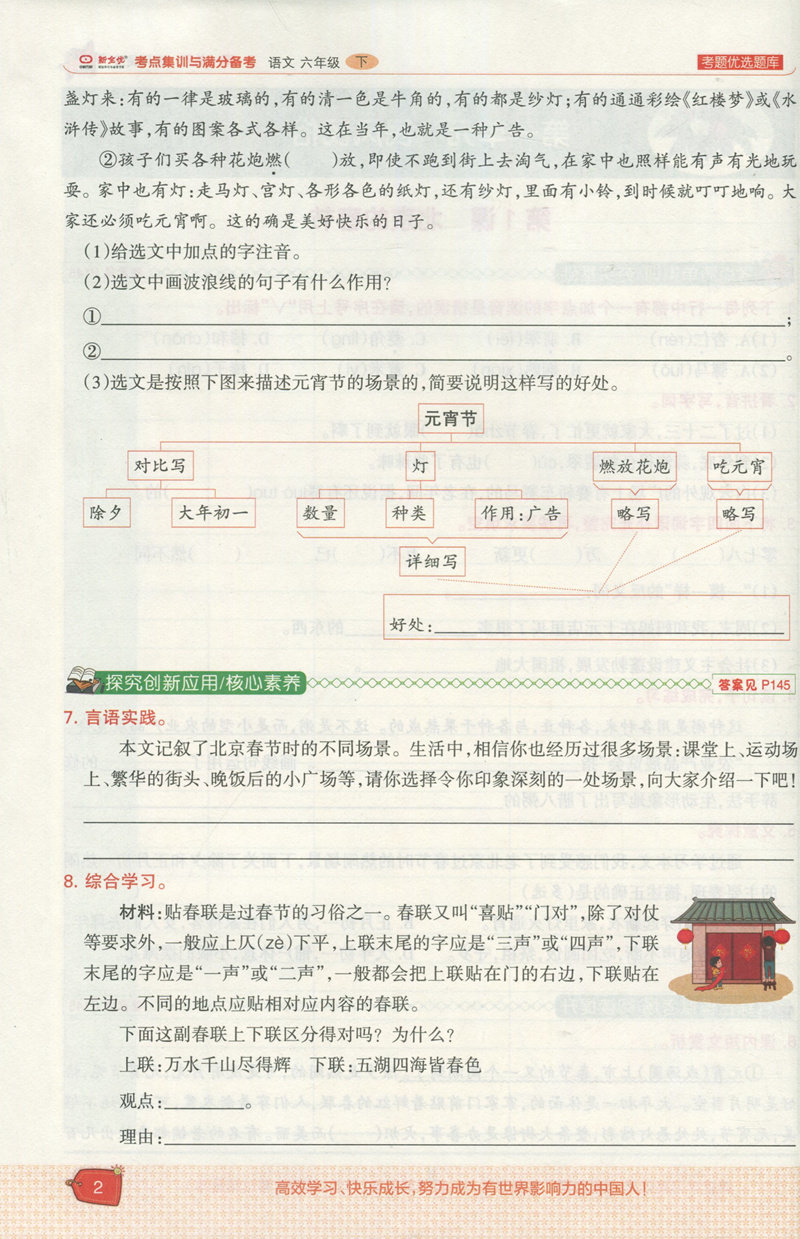 新立优 考点集训与满分备考 语文 六年级 下 考题优选题库
盏灯来:有的一律是玻璃的,有的清一色是牛角的,有的都是纱灯;有的通通彩绘《红楼梦》或《水
浒传》故事,有的图案各式各样。这在当年,也就是一种广告。
②孩子们买各种花炮燃( )放,即使不跑到街上去淘气,在家中也照样能有声有光地玩
耍。家中也有灯:走马灯、宫灯、各形各色的纸灯,还有纱灯,里面有小铃,到时候就叮叮地响。大
家还必须吃元宵啊。这的确是美好快乐的日子。
(1)给选文中加点的字注音。
(2)选文中画波浪线的句子有什么作用?
①;
②。
(3)选文是按照下图来描述元宵节的场景的,简要说明这样写的好处。
元宵节
对比写 灯 燃放花炮 吃元宵
除夕 大年初一 数量 种类 作用:广告 略写 略写
详细写
好处:
探究创新应用/核心素养 答案见 P145
7. 言语实践。
本文记叙了北京春节时的不同场景。生活中,相信你也经历过很多场景:课堂上、运动场
上、繁华的街头、晚饭后的小广场等,请你选择令你印象深刻的一处场景,向大家介绍一下吧!
8. 综合学习。
材料:贴春联是过春节的习俗之一。春联又叫“喜贴”“门对”,除了对仗
等要求外,一般应上仄(zè)下平,上联末尾的字应是“三声”或“四声”,下联
末尾的字应是“一声”或“二声”,一般都会把上联贴在门的右边,下联贴在
左边。不同的地点应贴相对应内容的春联。
下面这副春联上下联区分得对吗?为什么?
上联:万水千山尽得辉 下联:五湖四海皆春色
观点:。
理由:
2 高效学习、快乐成长,努力成为有世界影响力的中国人!